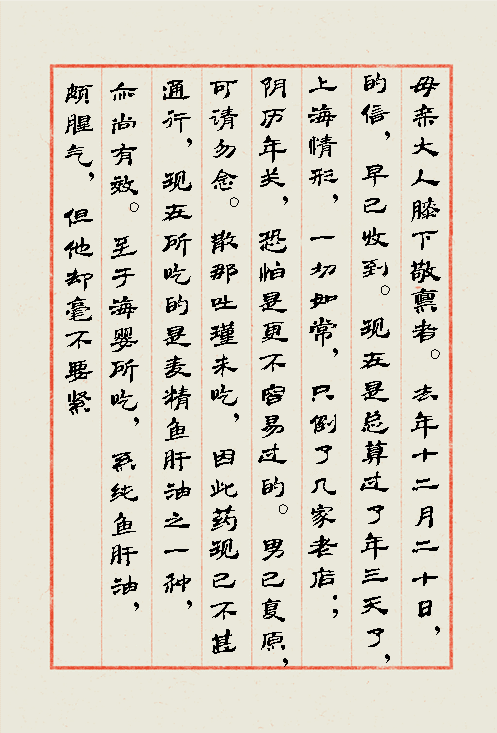 母亲大人膝下敬禀者。去年十二月二十日，
的信，早已收到。现在是总算过了年三天了，
上海情形，一切如常，只倒了几家老店；
阴历年关，恐怕是更不容易过的。男已复原，
可请勿念。散那吐瑾未吃，因此药现已不甚
通行，现在所吃的是麦精鱼肝油之一种，
亦尚有效。至于海婴所吃，系纯鱼肝油，
颇腥气，但他却毫不要紧